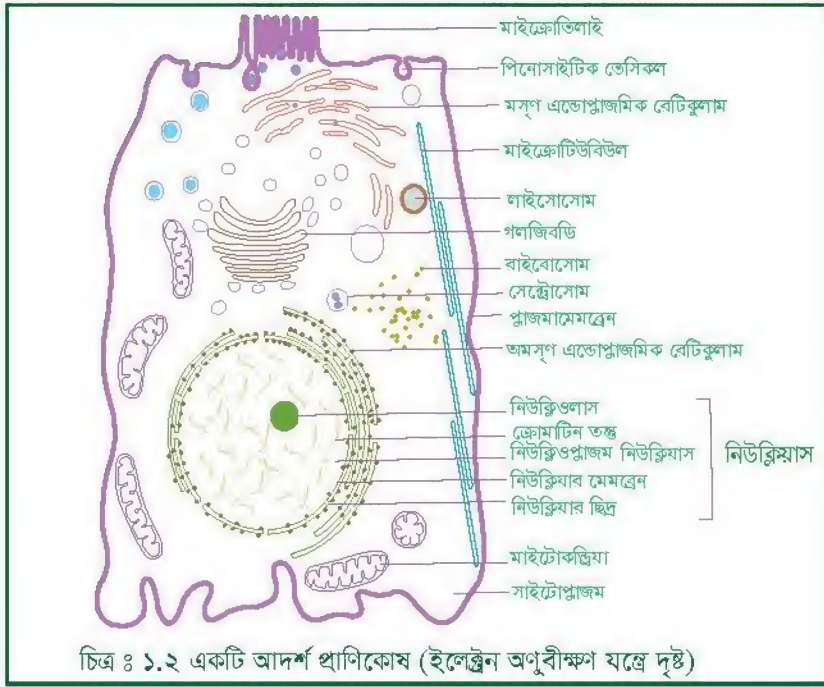 মাইক্রোভিলাই
পিনোসাইটিক ভেসিকল
মসৃণ এন্ডোপ্লাজমিক রেটিকুলাম
মাইক্রোটিউবিউল
লাইসোসোম
গলজিবডি
রাইবোসোম
সেন্ট্রোসোম
প্লাজমামেমব্রেন
অমসৃণ এন্ডোপ্লাজমিক রেটিকুলাম
নিউক্লিওলাস
ক্রোমাটিন তন্তু
নিউক্লিওপ্লাজম নিউক্লিয়াস
নিউক্লিয়ার মেমব্রেন
নিউক্লিয়ার ছিদ্র
নিউক্লিয়াস
মাইটোকন্ড্রিয়া
সাইটোপ্লাজম
চিত্র ঃ ১.২ একটি আদর্শ প্রাণিকোষ (ইলেক্ট্রন অণুবীক্ষণ যন্ত্রে দৃষ্ট)